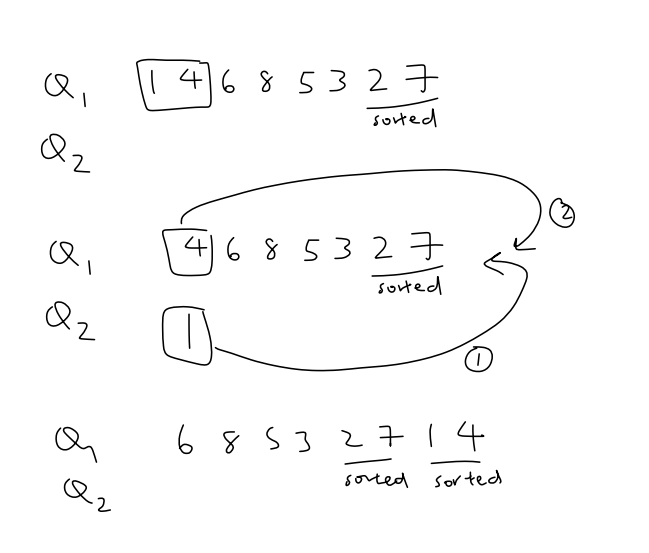 Q1 1 4 6 8 5 3 2 7
sorted
Q2
②
Q1 4 6 8 5 3 2 7
sorted
Q2 1
①
Q1 6 8 5 3 2 7 1 4
sorted sorted
Q2